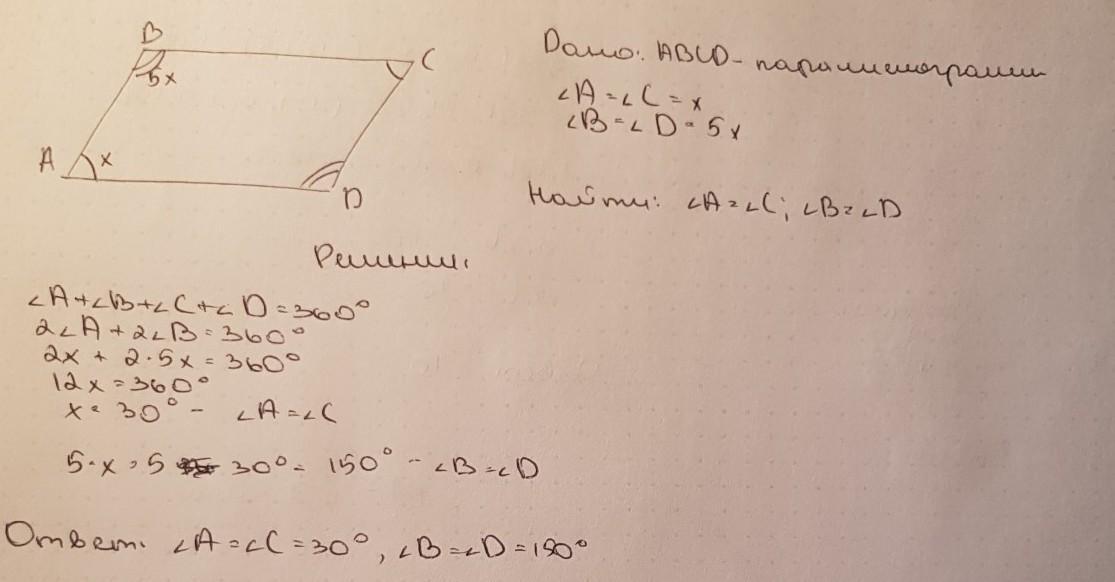 B
C
5x
A
x
D
Дано: ABCD - параллелограмм
∠A = ∠C = x
∠B = ∠D = 5x
Найти: ∠A = ∠C; ∠B = ∠D
Решение.
∠A + ∠B + ∠C + ∠D = 360°
2∠A + 2∠B = 360°
2x + 2·5x = 360°
12x = 360°
x = 30° - ∠A = ∠C
5·x = 5 30° = 150° - ∠B = ∠D
Ответ. ∠A = ∠C = 30°, ∠B = ∠D = 150°